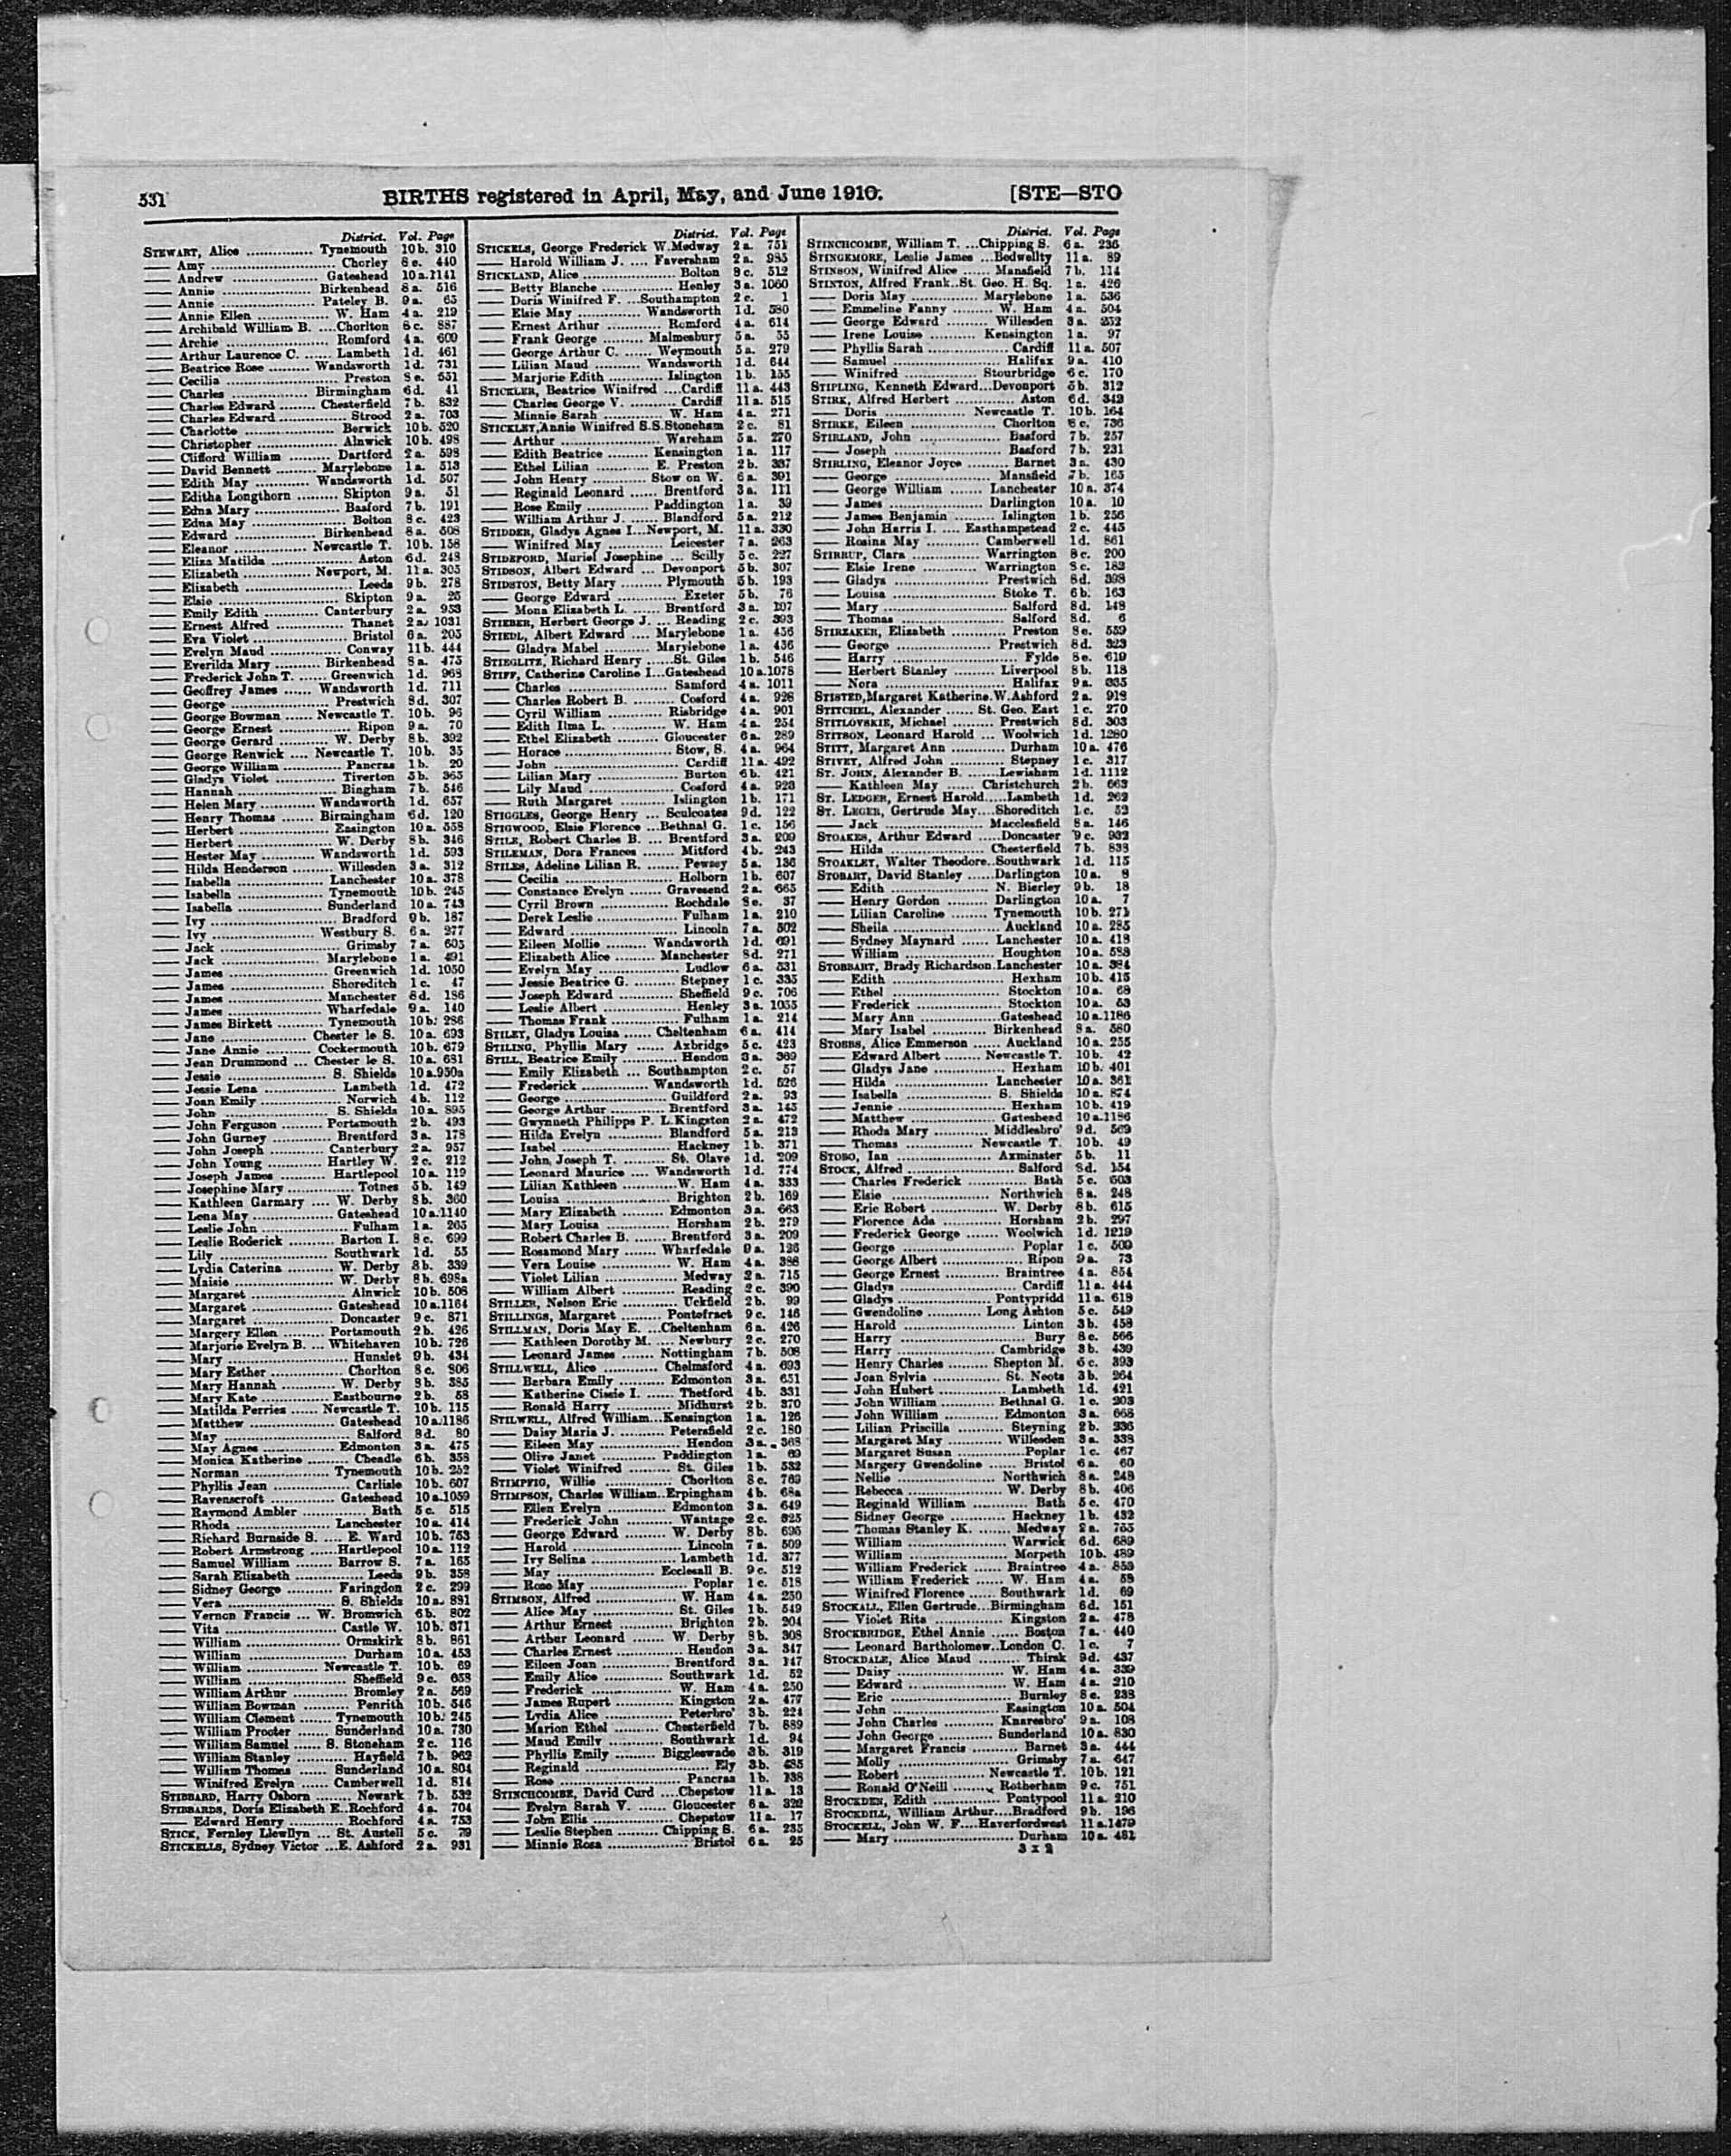 531 BIRTHS registered in April, May, and June 1910. [STE—STO
District. Vol. Page
STEWART, Alice ............... Tynemouth 10 b. 310
—— Amy ............................ Chorley 8 e. 440
—— Andrew ..................... Gateshead 10 a. 1141
—— Annie ..................... Birkenhead 8 a. 516
—— Annie ..................... Pateley B. 9 a. 65
—— Annie Ellen ............... W. Ham 4 a. 219
—— Archibald William B. .... Chorlton 8 c. 887
—— Archie ........................ Romford 4 a. 600
—— Arthur Laurence C. ...... Lambeth 1 d. 461
—— Beatrice Rose ......... Wandsworth 1 d. 731
—— Cecilia ........................ Preston 8 e. 551
—— Charles .................. Birmingham 6 d. 41
—— Charles Edward ........ Chesterfield 7 b. 832
—— Charles Edward ............ Strood 2 a. 703
—— Charlotte ..................... Berwick 10 b. 520
—— Christopher .................. Alnwick 10 b. 498
—— Clifford William ......... Dartford 2 a. 598
—— David Bennett ......... Marylebone 1 a. 513
—— Edith May ............ Wandsworth 1 d. 507
—— Editha Longthorn ......... Skipton 9 a. 51
—— Edna Mary .................. Basford 7 b. 191
—— Edna May ..................... Bolton 8 c. 423
—— Edward .................. Birkenhead 8 a. 508
—— Eleanor ............... Newcastle T. 10 b. 158
—— Eliza Matilda .................. Aston 6 d. 248
—— Elizabeth ............... Newport, M. 11 a. 305
—— Elizabeth ........................ Leeds 9 b. 278
—— Elsie ........................... Skipton 9 a. 25
—— Emily Edith ............ Canterbury 2 a. 953
—— Ernest Alfred .................. Thanet 2 a. 1031
—— Eva Violet ..................... Bristol 6 a. 205
—— Evelyn Maud ............... Conway 11 b. 444
—— Everilda Mary .......... Birkenhead 8 a. 475
—— Frederick John T. ...... Greenwich 1 d. 968
—— Geoffrey James ...... Wandsworth 1 d. 711
—— George ..................... Prestwich 8 d. 307
—— George Bowman ...... Newcastle T. 10 b. 96
—— George Ernest .................. Ripon 9 a. 70
—— George Gerard ........... W. Derby 8 b. 392
—— George Renwick .... Newcastle T. 10 b. 35
—— George William ............ Pancras 1 b. 20
—— Gladys Violet ............... Tiverton 5 b. 365
—— Hannah ..................... Bingham 7 b. 546
—— Helen Mary ............ Wandsworth 1 d. 657
—— Henry Thomas ....... Birmingham 6 d. 120
—— Herbert ..................... Easington 10 a. 558
—— Herbert ..................... W. Derby 8 b. 346
—— Hester May ............ Wandsworth 1 d. 593
—— Hilda Henderson ......... Willesden 3 a. 312
—— Isabella ..................... Lanchester 10 a. 378
—— Isabella ..................... Tynemouth 10 b. 245
—— Isabella ..................... Sunderland 10 a. 743
—— Ivy ........................... Bradford 9 b. 187
—— Ivy ........................ Westbury S. 6 a. 277
—— Jack ........................... Grimsby 7 a. 605
—— Jack ..................... Marylebone 1 a. 491
—— James ..................... Greenwich 1 d. 1050
—— James ..................... Shoreditch 1 c. 47
—— James ..................... Manchester 8 d. 186
—— James ..................... Wharfedale 9 a. 140
—— James Birkett ......... Tynemouth 10 b. 286
—— Jane .................. Chester le S. 10 a. 693
—— Jane Annie .......... Cockermouth 10 b. 679
—— Jean Drummond ... Chester le S. 10 a. 681
—— Jessie ..................... S. Shields 10 a. 950a
—— Jessie Lena .................. Lambeth 1 d. 472
—— Joan Emily ................. Norwich 4 b. 112
—— John ........................ S. Shields 10 a. 895
—— John Ferguson ......... Portsmouth 2 b. 493
—— John Gurney ............... Brentford 3 a. 178
—— John Joseph ............ Canterbury 2 a. 957
—— John Young ............ Hartley W. 2 c. 212
—— Joseph James ............ Hartlepool 10 a. 119
—— Josephine Mary ............... Totnes 5 b. 149
—— Kathleen Garmary .... W. Derby 8 b. 360
—— Lena May .................. Gateshead 10 a. 1140
—— Leslie John ..................... Fulham 1 a. 265
—— Leslie Roderick .......... Barton I. 8 c. 699
—— Lily ........................ Southwark 1 d. 55
—— Lydia Caterina .......... W. Derby 8 b. 339
—— Maisie ..................... W. Derby 8 b. 698a
—— Margaret ..................... Alnwick 10 b. 508
—— Margaret .................. Gateshead 10 a. 1164
—— Margaret .................. Doncaster 9 c. 871
—— Margery Ellen .......... Portsmouth 2 b. 426
—— Marjorie Evelyn B. ... Whitehaven 10 b. 726
—— Mary ........................... Hunslet 9 b. 434
—— Mary Esther ............... Chorlton 8 c. 806
—— Mary Hannah ............ W. Derby 8 b. 385
—— Mary Kate ............... Eastbourne 2 b. 58
—— Matilda Perries ...... Newcastle T. 10 b. 115
—— Matthew .................. Gateshead 10 a. 1186
—— May ........................... Salford 8 d. 80
—— May Agnes ............... Edmonton 3 a. 475
—— Monica Katherine ......... Cheadle 6 b. 358
—— Norman ..................... Tynemouth 10 b. 252
—— Phyllis Jean .................. Carlisle 10 b. 607
—— Ravenscroft ............... Gateshead 10 a. 1059
—— Raymond Ambler ............ Bath 5 c. 515
—— Rhoda ..................... Lanchester 10 a. 414
—— Richard Burnside S. .... E. Ward 10 b. 753
—— Robert Armstrong ...... Hartlepool 10 a. 112
—— Samuel William ....... Barrow S. 7 a. 165
—— Sarah Elizabeth ............... Leeds 9 b. 358
—— Sidney George .......... Faringdon 2 c. 299
—— Vera ........................ S. Shields 10 a. 891
—— Vernon Francis ... W. Bromwich 6 b. 802
—— Vita ........................ Castle W. 10 b. 371
—— William ..................... Ormskirk 8 b. 861
—— William ..................... Durham 10 a. 453
—— William ............... Newcastle T. 10 b. 69
—— William ..................... Sheffield 9 c. 658
—— William Arthur ............ Bromley 2 a. 569
—— William Bowman .......... Penrith 10 b. 546
—— William Clement ...... Tynemouth 10 b. 245
—— William Procter ...... Sunderland 10 a. 730
—— William Samuel ...... S. Stoneham 2 c. 116
—— William Stanley .......... Hayfield 7 b. 962
—— William Thomas ...... Sunderland 10 a. 804
—— Winifred Evelyn ...... Camberwell 1 d. 814
STIBBARD, Harry Osborn ........ Newark 7 b. 532
STIBBARDS, Doris Elizabeth E.. Rochford 4 a. 704
—— Edward Henry ............ Rochford 4 a. 753
STICK, Fernley Llewllyn ... St. Austell 5 c. 79
STICKELLS, Sydney Victor ... E. Ashford 2 a. 931
District. Vol. Page
STICKELS, George Frederick W. Medway 2 a. 751
—— Harold William J. .... Faversham 2 a. 985
STICKLAND, Alice ..................... Bolton 8 c. 512
—— Betty Blanche ................ Henley 3 a. 1060
—— Doris Winifred F. ... Southampton 2 c. 1
—— Elsie May .............. Wandsworth 1 d. 580
—— Ernest Arthur ............ Romford 4 a. 614
—— Frank George ......... Malmesbury 5 a. 55
—— George Arthur C. ...... Weymouth 5 a. 279
—— Lilian Maud .......... Wandsworth 1 d. 644
—— Marjorie Edith ............ Islington 1 b. 155
STICKLER, Beatrice Winifred .... Cardiff 11 a. 443
—— Charles George V. ......... Cardiff 11 a. 515
—— Minnie Sarah ............... W. Ham 4 a. 271
STICKLEY, Annie Winifred S. S. Stoneham 2 c. 81
—— Arthur ..................... Wareham 5 a. 270
—— Edith Beatrice ......... Kensington 1 a. 117
—— Ethel Lilian ............ E. Preston 2 b. 387
—— John Henry ......... Stow on W. 6 a. 391
—— Reginald Leonard ...... Brentford 3 a. 111
—— Rose Emily ............ Paddington 1 a. 39
—— William Arthur J. ...... Blandford 5 a. 212
STIDDER, Gladys Agnes I... Newport, M. 11 a. 330
—— Winifred May ............ Leicester 7 a. 263
STIDEFORD, Muriel Josephine ... Scilly 5 c. 227
STIDSON, Albert Edward ... Devonport 5 b. 307
STIDSTON, Betty Mary ......... Plymouth 5 b. 193
—— George Edward ............... Exeter 5 b. 76
—— Mona Elizabeth L. ...... Brentford 3 a. 107
STIEBER, Herbert George J. ... Reading 2 c. 393
STIEDL, Albert Edward .... Marylebone 1 a. 456
—— Gladys Mabel ......... Marylebone 1 a. 436
STIEGLITZ, Richard Henry ...... St. Giles 1 b. 546
STIFF, Catherine Caroline I... Gateshead 10 a. 1078
—— Charles ..................... Samford 4 a. 1011
—— Charles Robert B. ......... Cosford 4 a. 928
—— Cyril William ............ Risbridge 4 a. 901
—— Edith Ilma L. ............... W. Ham 4 a. 254
—— Ethel Elizabeth ......... Gloucester 6 a. 289
—— Horace ........................ Stow, S. 4 a. 964
—— John ........................... Cardiff 11 a. 492
—— Lilian Mary .................. Burton 6 b. 421
—— Lily Maud .................. Cosford 4 a. 928
—— Ruth Margaret ............ Islington 1 b. 171
STIGGLES, George Henry ... Sculcoates 9 d. 122
STIGWOOD, Elsie Florence ... Bethnal G. 1 c. 156
STILE, Robert Charles B. ... Brentford 3 a. 209
STILEMAN, Dora Frances ....... Mitford 4 b. 243
STILES, Adeline Lilian R. ........ Pewsey 5 a. 136
—— Cecilia ........................ Holborn 1 b. 607
—— Constance Evelyn ....... Gravesend 2 a. 665
—— Cyril Brown ............... Rochdale 8 e. 37
—— Derek Leslie .................. Fulham 1 a. 210
—— Edward ........................ Lincoln 7 a. 502
—— Eileen Mollie ......... Wandsworth 1 d. 691
—— Elizabeth Alice ......... Manchester 8 d. 271
—— Evelyn May .................. Ludlow 6 a. 531
—— Jessie Beatrice G. ......... Stepney 1 c. 335
—— Joseph Edward ............ Sheffield 9 c. 706
—— Leslie Albert .................. Henley 3 a. 1055
—— Thomas Frank ............... Fulham 1 a. 214
STILEY, Gladys Louisa ...... Cheltenham 6 a. 414
STILING, Phyllis Mary ....... Axbridge 5 c. 423
STILL, Beatrice Emily ............ Hendon 3 a. 369
—— Emily Elizabeth ... Southampton 2 c. 57
—— Frederick ............... Wandsworth 1 d. 526
—— George ..................... Guildford 2 a. 93
—— George Arthur ............ Brentford 3 a. 145
—— Gwynneth Philipps P. L. Kingston 2 a. 472
—— Hilda Evelyn ............ Blandford 5 a. 213
—— Isabel ........................ Hackney 1 b. 371
—— John Joseph T. .......... St. Olave 1 d. 209
—— Leonard Maurice .... Wandsworth 1 d. 774
—— Lilian Kathleen ............ W. Ham 4 a. 333
—— Louisa ........................ Brighton 2 b. 169
—— Mary Elizabeth ......... Edmonton 3 a. 663
—— Mary Louisa ............... Horsham 2 b. 279
—— Robert Charles B. ....... Brentford 3 a. 209
—— Rosamond Mary ....... Wharfedale 9 a. 126
—— Vera Louise .................. W. Ham 4 a. 388
—— Violet Lilian ............... Medway 2 a. 715
—— William Albert ............ Reading 2 c. 390
STILLER, Nelson Eric ............ Uckfield 2 b. 99
STILLINGS, Margaret ......... Pontefract 9 c. 146
STILLMAN, Doris May E. ... Cheltenham 6 a. 426
—— Kathleen Dorothy M. .... Newbury 2 c. 270
—— Leonard James ....... Nottingham 7 b. 508
STILLWELL, Alice ............ Chelmsford 4 a. 693
—— Barbara Emily ......... Edmonton 3 a. 651
—— Katherine Cissie I. ...... Thetford 4 b. 331
—— Ronald Harry ............ Midhurst 2 b. 370
STILWELL, Alfred William... Kensington 1 a. 126
—— Daisy Maria J. .......... Petersfield 2 c. 180
—— Eileen May .................. Hendon 3 a. 368
—— Olive Janet ............ Paddington 1 a. 69
—— Violet Winifred ......... St. Giles 1 b. 532
STIMPFIG, Willie ............... Chorlton 8 c. 769
STIMPSON, Charles William.. Erpingham 4 b. 68a
—— Ellen Evelyn ............ Edmonton 3 a. 649
—— Frederick John .......... Wantage 2 c. 325
—— George Edward ......... W. Derby 8 b. 695
—— Harold ........................ Lincoln 7 a. 509
—— Ivy Selina .................. Lambeth 1 d. 377
—— May ..................... Ecclesall B. 9 c. 512
—— Rose May ..................... Poplar 1 c. 518
STIMSON, Alfred .................. W. Ham 4 a. 250
—— Alice May .................. St. Giles 1 b. 549
—— Arthur Ernest ............ Brighton 2 b. 204
—— Arthur Leonard ....... W. Derby 8 b. 308
—— Charles Ernest ............ Hendon 3 a. 347
—— Eileen Joan ............... Brentford 3 a. 147
—— Emily Alice ............ Southwark 1 d. 52
—— Frederick .................. W. Ham 4 a. 250
—— James Rupert ............ Kingston 2 a. 477
—— Lydia Alice ............... Peterbro' 3 b. 224
—— Marion Ethel .......... Chesterfield 7 b. 889
—— Maud Emily ............ Southwark 1 d. 94
—— Phyllis Emily ......... Biggleswade 3 b. 319
—— Reginald ........................... Ely 3 b. 485
—— Rose ........................... Pancras 1 b. 138
STINCHCOMBE, David Curd .... Chepstow 11 a. 13
—— Evelyn Sarah V. ...... Gloucester 6 a. 322
—— John Ellis .................. Chepstow 11 a. 17
—— Leslie Stephen ......... Chipping S. 6 a. 235
—— Minnie Rosa .................. Bristol 6 a. 25
District. Vol. Page
STINCHCOMBE, William T. ... Chipping S. 6 a. 236
STINGEMORE, Leslie James ... Bedwellty 11 a. 89
STINSON, Winifred Alice ...... Mansfield 7 b. 114
STINTON, Alfred Frank.. St. Geo. H. Sq. 1 a. 426
—— Doris May ............... Marylebone 1 a. 536
—— Emmeline Fanny ......... W. Ham 4 a. 504
—— George Edward ......... Willesden 3 a. 252
—— Irene Louise ............ Kensington 1 a. 97
—— Phyllis Sarah .................. Cardiff 11 a. 507
—— Samuel ........................ Halifax 9 a. 410
—— Winifred ............... Stourbridge 6 c. 170
STIPLING, Kenneth Edward... Devonport 5 b. 312
STIRK, Alfred Herbert ............ Aston 6 d. 342
—— Doris .................. Newcastle T. 10 b. 164
STIRKE, Eileen .................. Chorlton 8 c. 736
STIRLAND, John .................. Basford 7 b. 257
—— Joseph ........................ Basford 7 b. 231
STIRLING, Eleanor Joyce ......... Barnet 3 a. 430
—— George ..................... Mansfield 7 b. 165
—— George William ....... Lanchester 10 a. 374
—— James ..................... Darlington 10 a. 10
—— James Benjamin ......... Islington 1 b. 256
—— John Harris I. .... Easthampstead 2 c. 445
—— Rosina May ............ Camberwell 1 d. 861
STIRRUP, Clara ............... Warrington 8 c. 200
—— Elsie Irene ............ Warrington 8 c. 182
—— Gladys ..................... Prestwich 8 d. 398
—— Louisa ........................ Stoke T. 6 b. 163
—— Mary ........................... Salford 8 d. 148
—— Thomas ........................ Salford 8 d. 6
STIRZAKER, Elizabeth ............ Preston 8 e. 559
—— George ..................... Prestwich 8 d. 323
—— Harry ........................... Fylde 8 e. 619
—— Herbert Stanley ......... Liverpool 8 b. 118
—— Nora ........................... Halifax 9 a. 335
STISTED, Margaret Katherine. W. Ashford 2 a. 918
STITCHEL, Alexander ...... St. Geo. East 1 c. 270
STITLOVSKIE, Michael ......... Prestwich 8 d. 303
STITSON, Leonard Harold ... Woolwich 1 d. 1280
STITT, Margaret Ann ............ Durham 10 a. 476
STIVEY, Alfred John ............ Stepney 1 c. 317
ST. JOHN, Alexander B. ....... Lewisham 1 d. 1112
—— Kathleen May ...... Christchurch 2 b. 663
ST. LEDGER, Ernest Harold..... Lambeth 1 d. 262
ST. LEGER, Gertrude May.... Shoreditch 1 c. 52
—— Jack ..................... Macclesfield 8 a. 146
STOAKES, Arthur Edward ..... Doncaster 9 c. 932
—— Hilda .................. Chesterfield 7 b. 838
STOAKLEY, Walter Theodore.. Southwark 1 d. 115
STOBART, David Stanley ...... Darlington 10 a. 8
—— Edith ..................... N. Bierley 9 b. 18
—— Henry Gordon ......... Darlington 10 a. 7
—— Lilian Caroline ........ Tynemouth 10 b. 271
—— Sheila ..................... Auckland 10 a. 285
—— Sydney Maynard ...... Lanchester 10 a. 418
—— William ..................... Houghton 10 a. 583
STOBBART, Brady Richardson. Lanchester 10 a. 384
—— Edith ........................ Hexham 10 b. 415
—— Ethel ........................ Stockton 10 a. 68
—— Frederick .................. Stockton 10 a. 53
—— Mary Ann ............... Gateshead 10 a. 1186
—— Mary Isabel ............ Birkenhead 8 a. 580
STOBBS, Alice Emmerson ...... Auckland 10 a. 255
—— Edward Albert ........ Newcastle T. 10 b. 42
—— Gladys Jane ............... Hexham 10 b. 401
—— Hilda ..................... Lanchester 10 a. 361
—— Isabella ..................... S. Shields 10 a. 874
—— Jennie ........................ Hexham 10 b. 419
—— Matthew .................. Gateshead 10 a. 1186
—— Rhoda Mary ............ Middlesbro' 9 d. 569
—— Thomas ............... Newcastle T. 10 b. 49
STOBO, Ian ..................... Axminster 5 b. 11
STOCK, Alfred ..................... Salford 8 d. 154
—— Charles Frederick ............ Bath 5 c. 603
—— Elsie ..................... Northwich 8 a. 248
—— Eric Robert ............... W. Derby 8 b. 615
—— Florence Ada ............... Horsham 2 b. 297
—— Frederick George ....... Woolwich 1 d. 1219
—— George ........................ Poplar 1 c. 509
—— George Albert .................. Ripon 9 a. 73
—— George Ernest ............ Braintree 4 a. 854
—— Gladys ........................ Cardiff 11 a. 444
—— Gladys ..................... Pontypridd 11 a. 618
—— Gwendoline ............ Long Ashton 5 c. 549
—— Harold ........................ Linton 3 b. 458
—— Harry ........................... Bury 8 c. 566
—— Harry ..................... Cambridge 3 b. 439
—— Henry Charles ......... Shepton M. 5 c. 393
—— Joan Sylvia ............... St. Neots 3 b. 264
—— John Hubert ............... Lambeth 1 d. 421
—— John William ............ Bethnal G. 1 c. 203
—— John William ............ Edmonton 3 a. 668
—— Lilian Priscilla ............ Steyning 2 b. 336
—— Margaret May ............ Willesden 3 a. 338
—— Margaret Susan ............... Poplar 1 c. 467
—— Margery Gwendoline ...... Bristol 6 a. 60
—— Nellie ..................... Northwich 8 a. 248
—— Rebecca ..................... W. Derby 8 b. 406
—— Reginald William ............ Bath 5 c. 470
—— Sidney George ............ Hackney 1 b. 432
—— Thomas Stanley K. ....... Medway 2 a. 755
—— William ..................... Warwick 6 d. 689
—— William ..................... Morpeth 10 b. 489
—— William Frederick ...... Braintree 4 a. 859
—— William Frederick ...... W. Ham 4 a. 58
—— Winifred Florence ...... Southwark 1 d. 69
STOCKALL, Ellen Gertrude... Birmingham 6 d. 151
—— Violet Rita ............... Kingston 2 a. 478
STOCKBRIDGE, Ethel Annie ...... Boston 7 a. 440
—— Leonard Bartholomew.. London C. 1 c. 7
STOCKDALE, Alice Maud ......... Thirsk 9 d. 437
—— Daisy ........................ W. Ham 4 a. 339
—— Edward ..................... W. Ham 4 a. 210
—— Eric ........................ Burnley 8 e. 238
—— John ..................... Easington 10 a. 504
—— John Charles ......... Knaresbro' 9 a. 108
—— John George ............ Sunderland 10 a. 830
—— Margaret Francis ......... Barnet 3 a. 444
—— Molly ..................... Grimsby 7 a. 647
—— Robert ............... Newcastle T. 10 b. 121
—— Ronald O'Neill ......... Rotherham 9 c. 751
STOCKDEN, Edith ............... Pontypool 11 a. 210
STOCKDILL, William Arthur.... Bradford 9 b. 196
STOCKELL, John W. F.... Haverfordwest 11 a. 1479
—— Mary ........................ Durham 10 a. 481
3 x 2